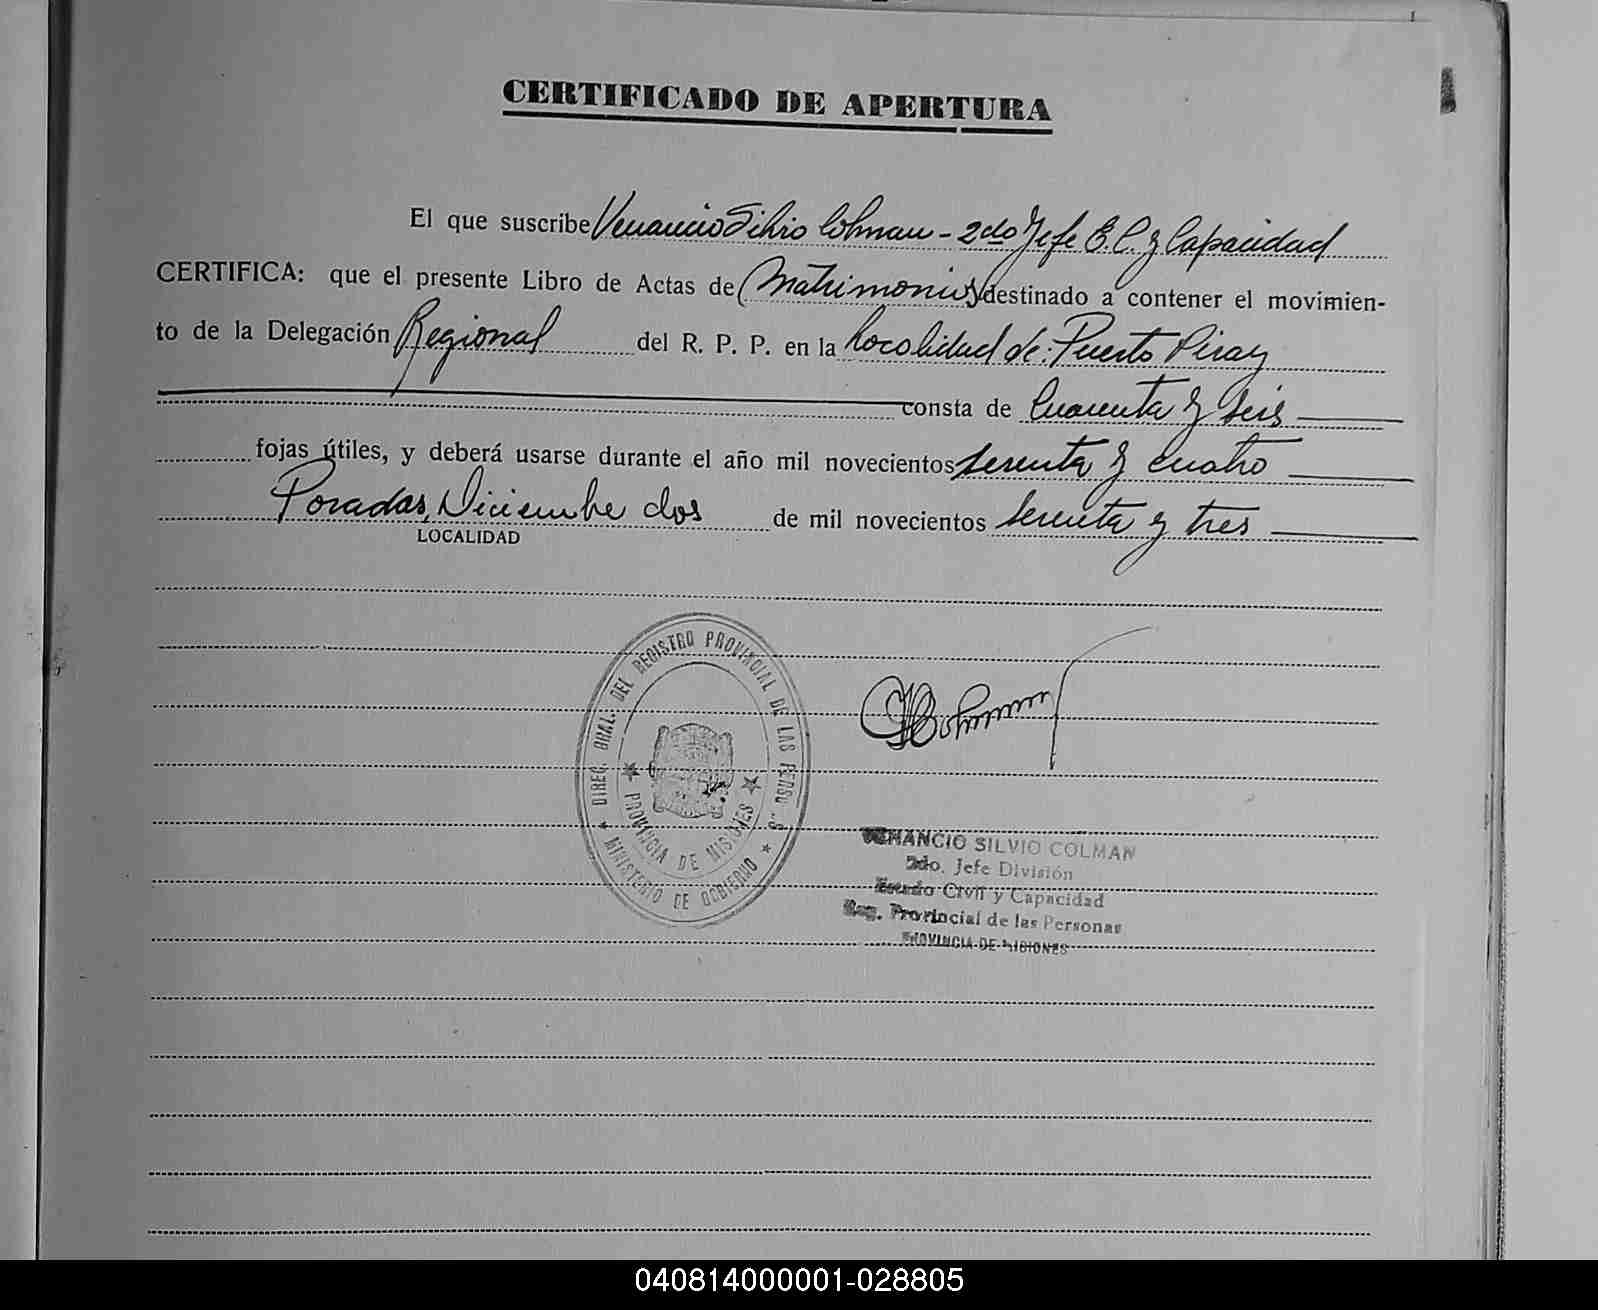 1
CERTIFICADO DE APERTURA
El que suscribe Venancio Silvio Colman - 2do Jefe E.C. y Capacidad
CERTIFICA: que el presente Libro de Actas de (Matrimonios) destinado a contener el movimien-
to de la Delegación Regional del R. P. P. en la Localidad de: Puerto Piray
consta de Cuarenta y seis
fojas útiles, y deberá usarse durante el año mil novecientos setenta y cuatro
Posadas, Diciembre dos de mil novecientos setenta y tres
LOCALIDAD
DIREC. GRAL. DEL REGISTRO PROVINCIAL DE LAS PERSONAS
PROVINCIA DE MISIONES
MINISTERIO DE GOBIERNO
Colman
VENANCIO SILVIO COLMAN
2do. Jefe División
Estado Civil y Capacidad
Reg. Provincial de las Personas
PROVINCIA DE MISIONES
040814000001-028805